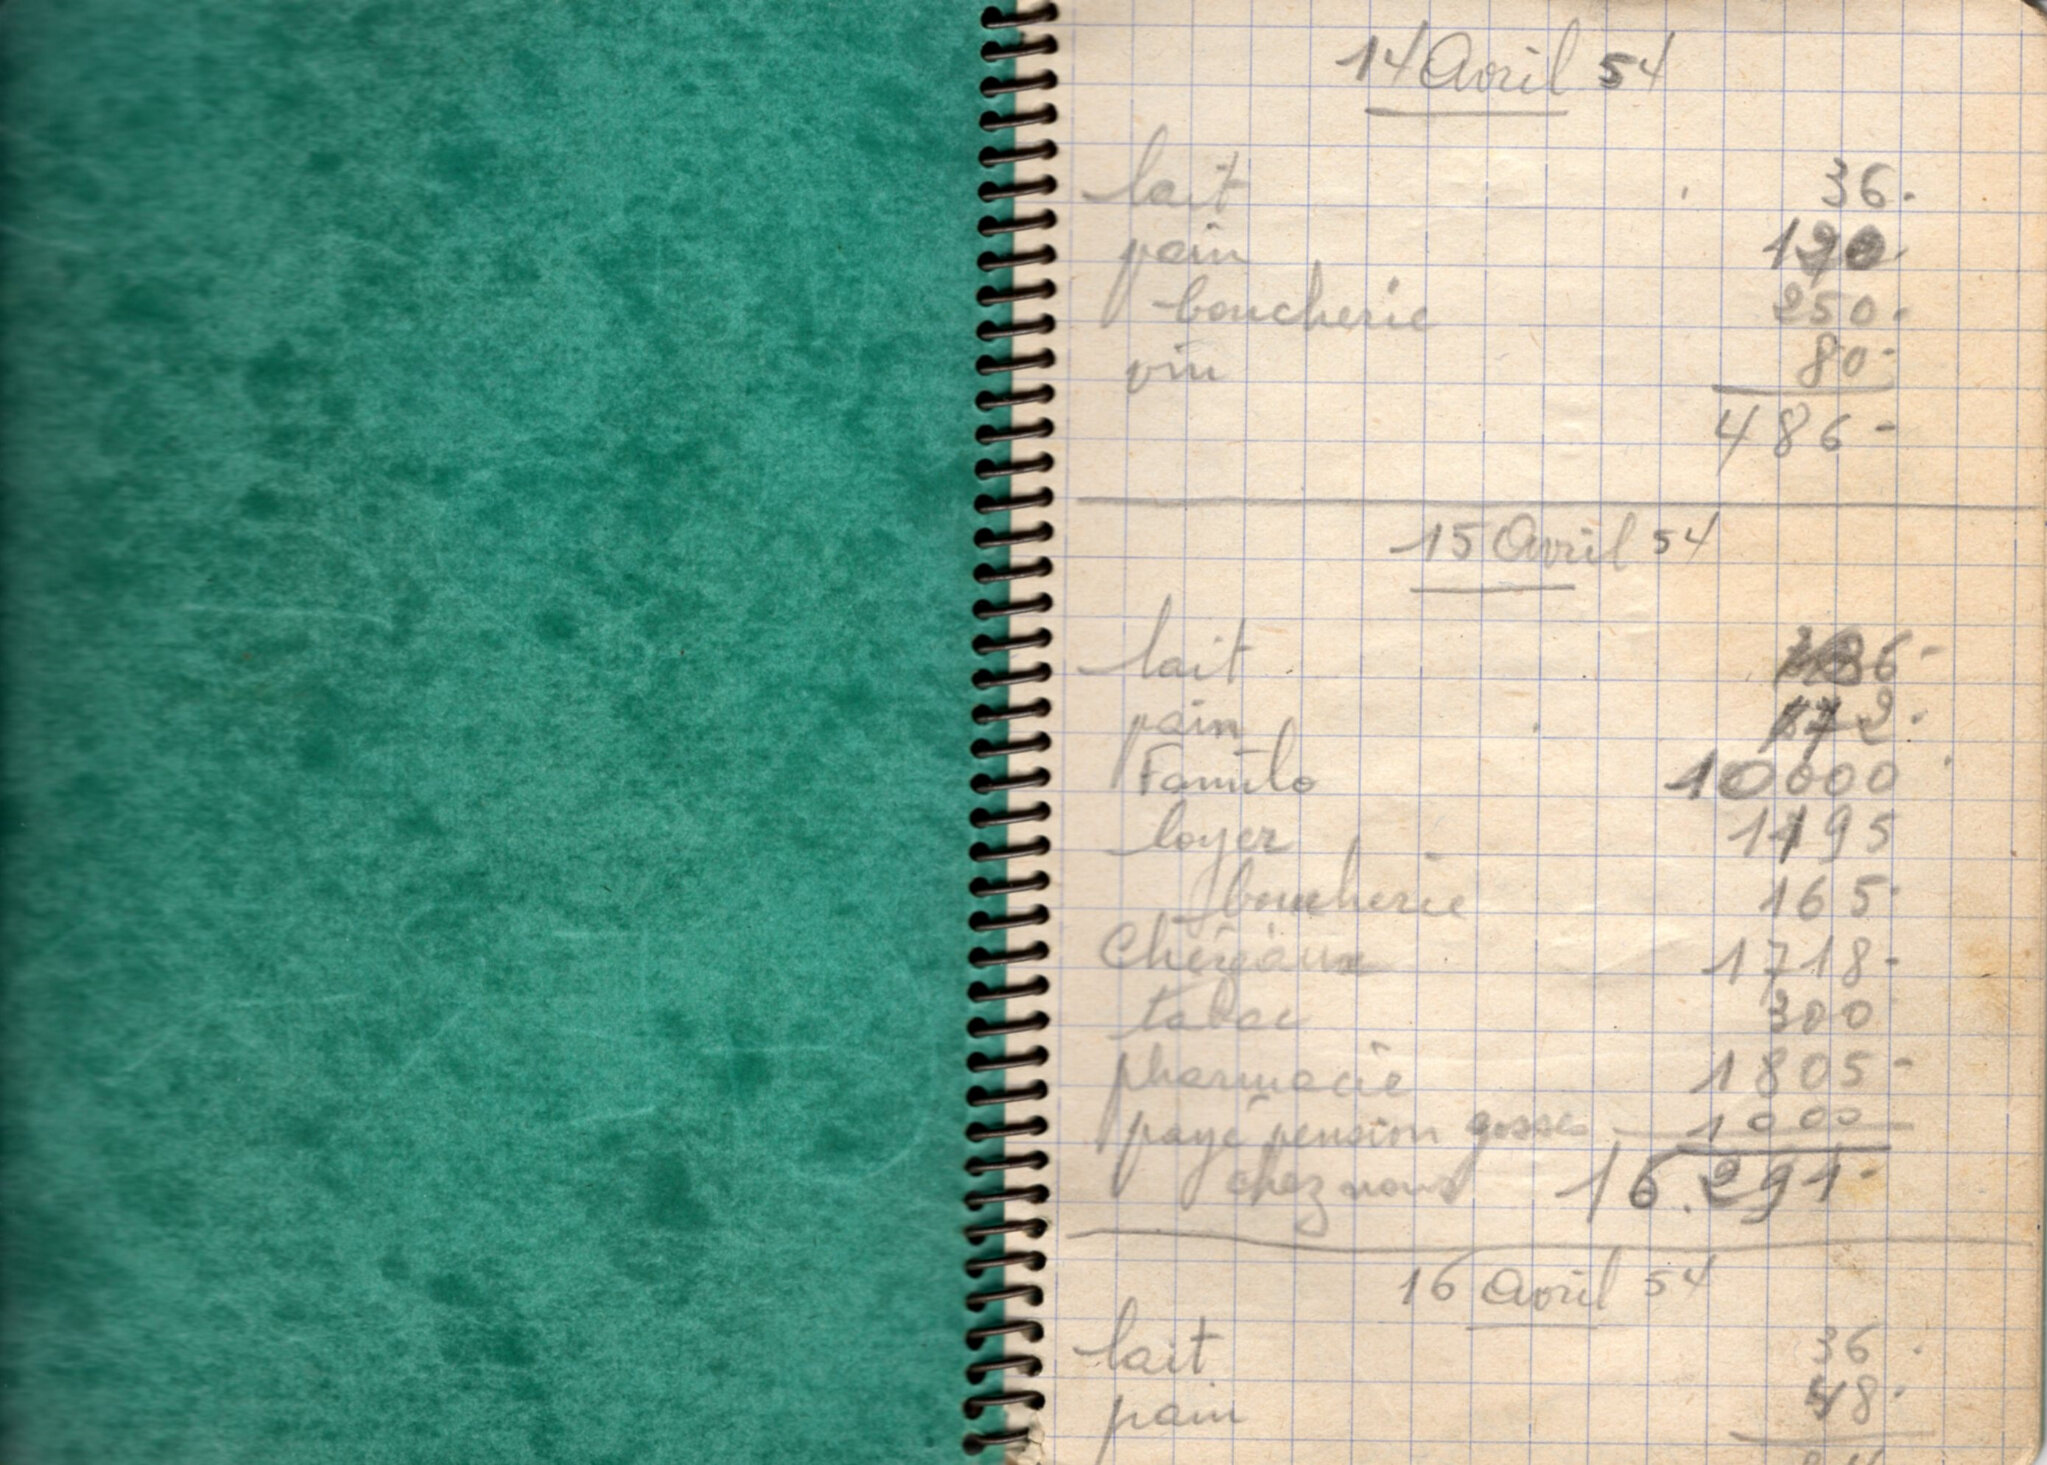 14 Avril 54
lait 36.
pain 120.
boucherie 250.
vin 80-
486-
15 Avril 54
lait 36-
pain 72.
Familo 10000
loyer 1195
boucherie 165-
1718-
tabac 300
pharmacie 1805-
paye pension gosses 1000
chez nous 16.291-
16 avril 54
lait 36.
pain 48.